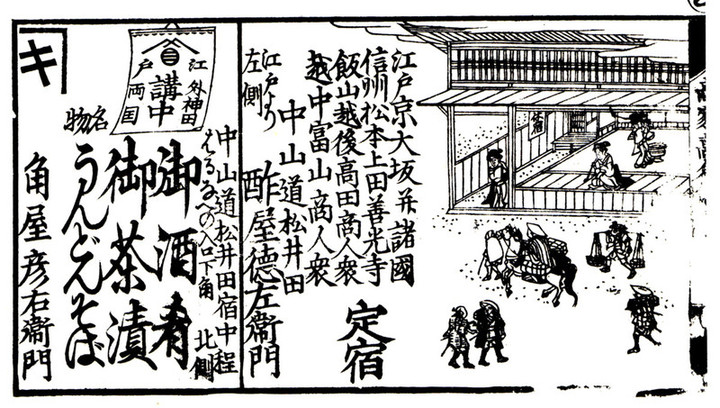 江戸京大坂并諸國
信州松本上田善光寺
飯山越後高田商人衆
越中富山商人衆
定宿
中山道松井田
江戸より
左側
酢屋徳左衛門
江戸
外神田
両国
講中
中山道松井田宿中程
はるなの入口下角
北側
御酒肴
御茶漬
名物
うんどんそば
角屋彦右衛門
キ